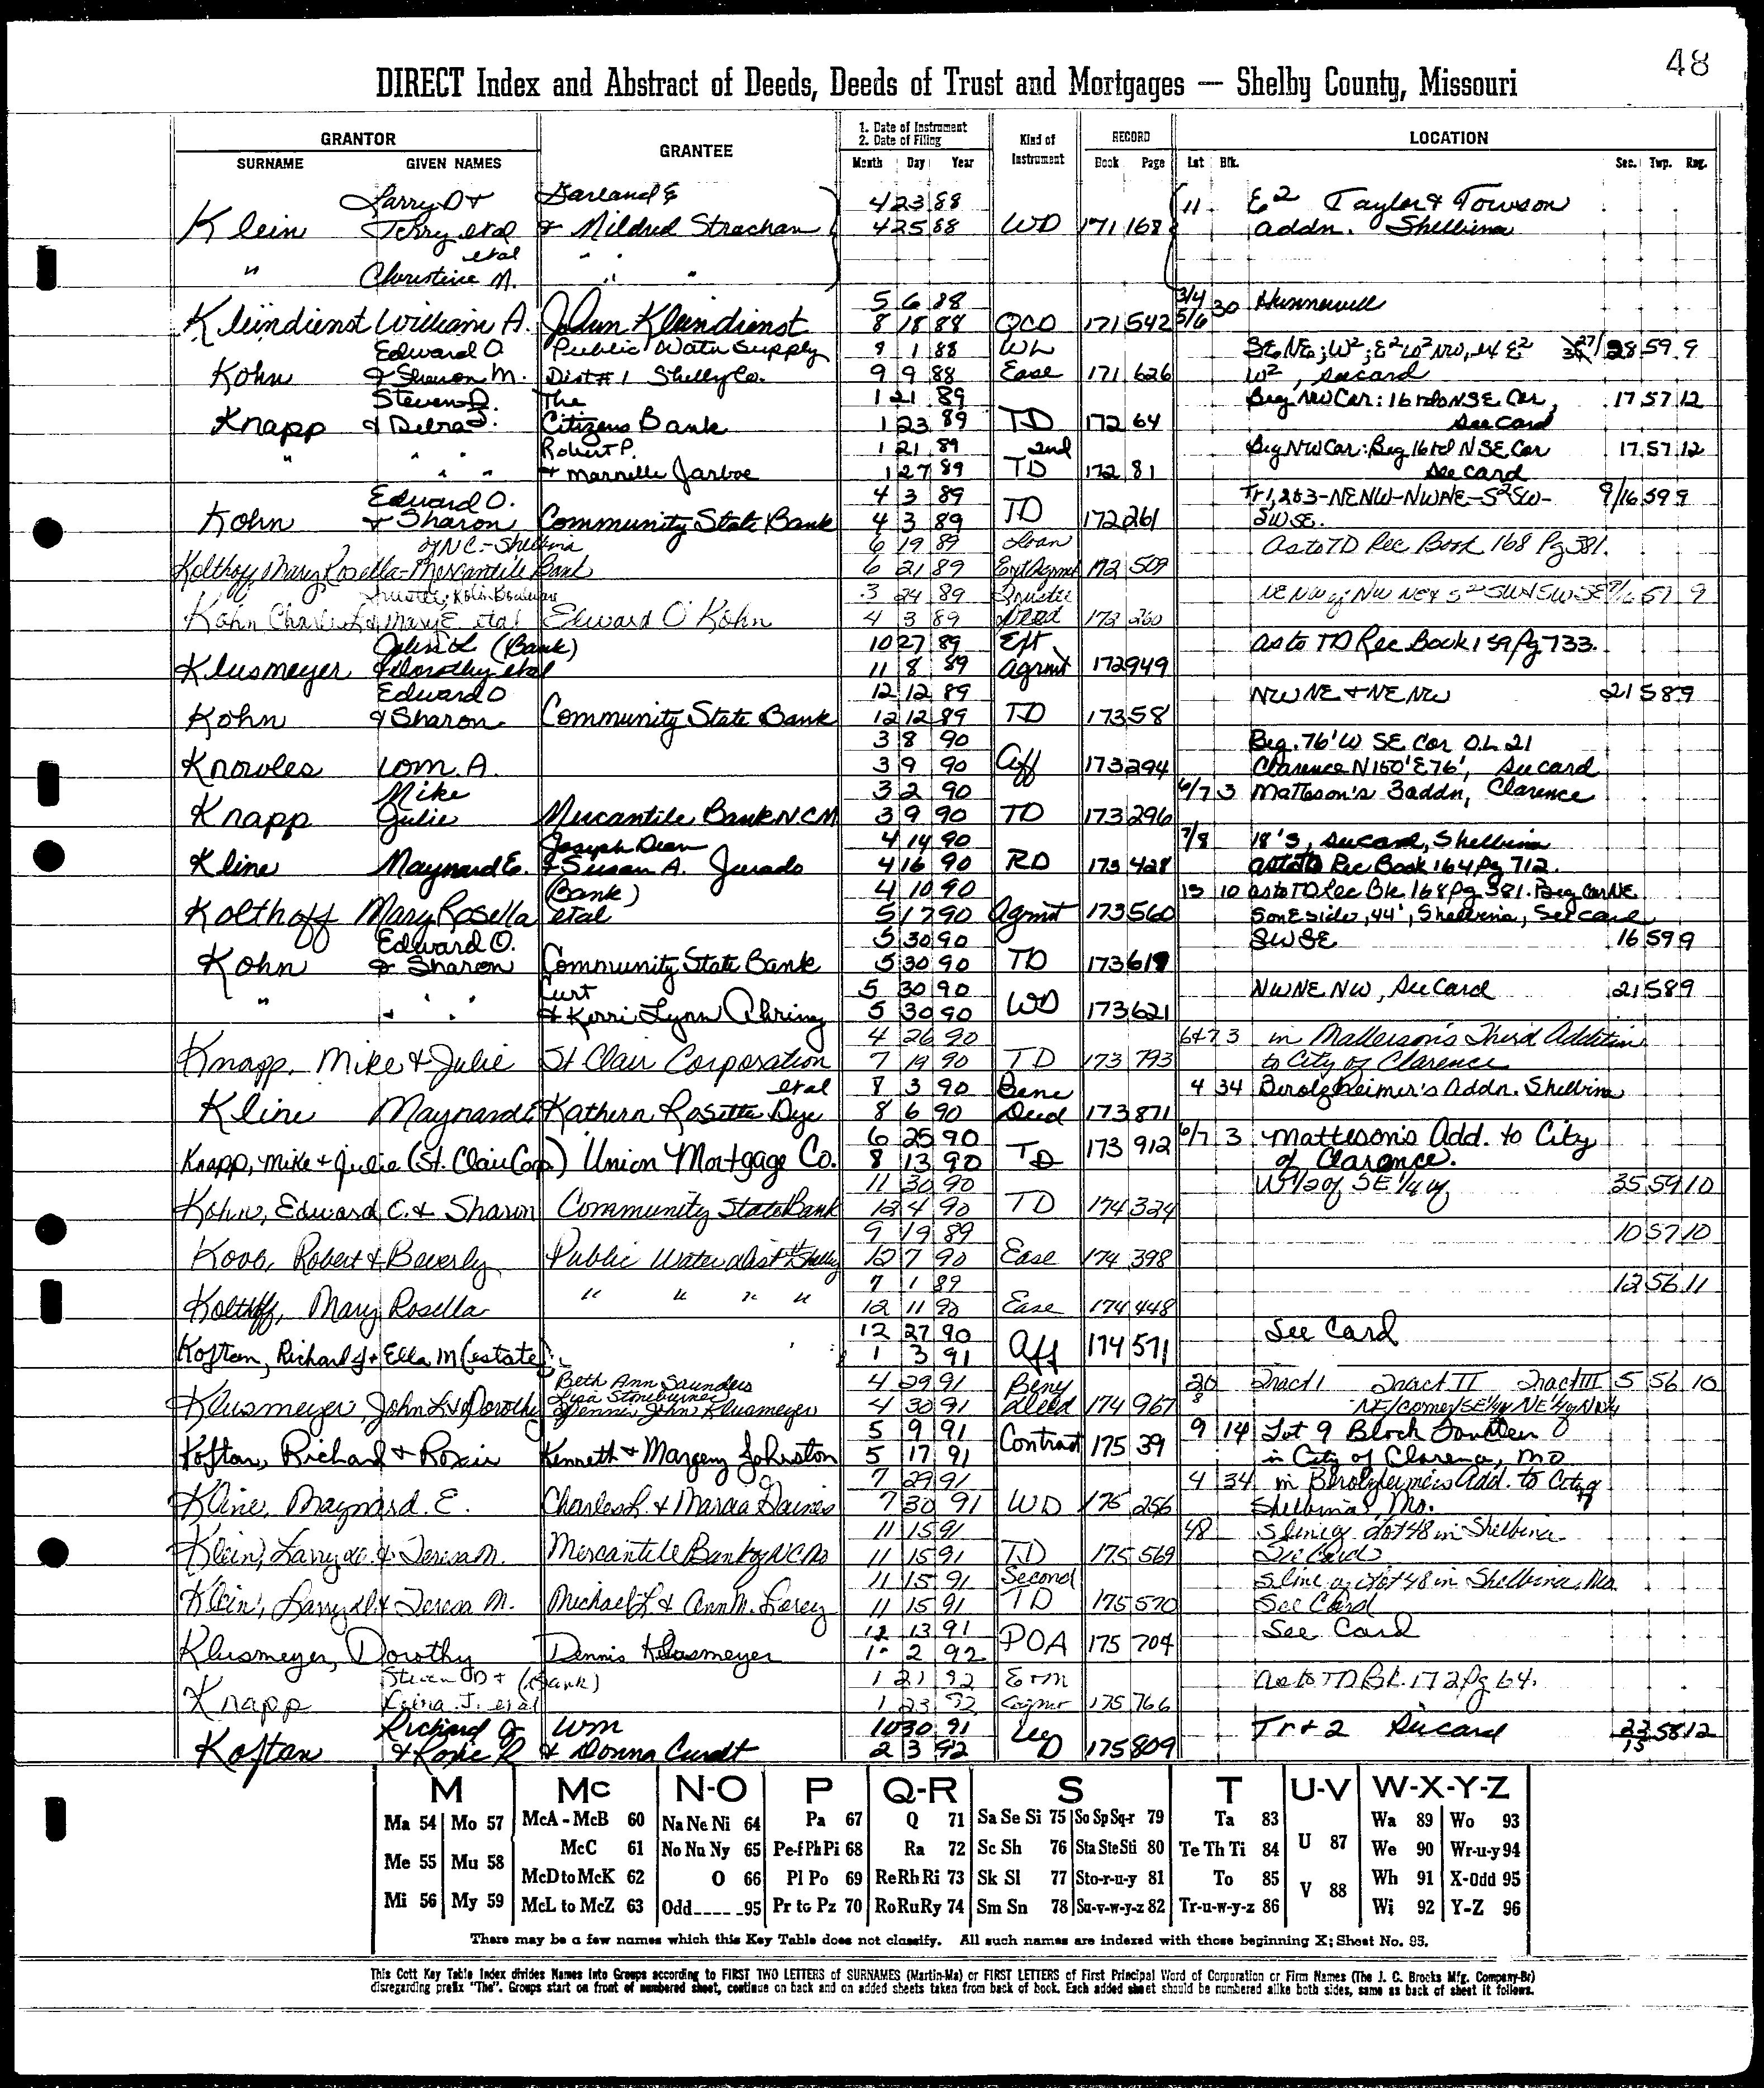 48
DIRECT Index and Abstract of Deeds, Deeds of Trust and Mortgages — Shelby County, Missouri
GRANTOR GRANTEE 1. Date of Instrument 2. Date of Filing Kind of Instrument RECORD LOCATION
SURNAME GIVEN NAMES Month Day Year Book Page Lot Blk. Sec. Twp. Rng.
Larry D + Garland E 4 23 88 11 E2 Taylor & Towson
Klein Terry etal + Mildred Strachan 4 25 88 WD 171 168 addn. Shelbina
etal
" Christine M. " " "
5 6 88 3/4 30 Hunnewell
Kleindienst William A. John Kleindienst 8 18 88 QCD 171 542 5/6
Edward O. Public Water Supply 9 1 88 WL SENE; W2; E2 W2 NW, 27/28 59 9
Kohn & Sharon M. Dist #1 Shelby Co. 9 9 88 Ease 171 626 W2, See card
Steven D. The 1 21 89 Beg NW Cor: 16 rds N SE Cor, 17 57 12
Knapp & Debra J. Citizens Bank 1 23 89 TD 172 64 See card
Robert P. 1 21 89 2nd Beg NW Cor: Beg 16 rd N SE Cor 17 57 12
" " " + Marnelle Jarboe 1 27 89 TD 172 81 See card
Edward O. 4 3 89 Tr 1,2&3-NENW-NWNE-S2SW- 9/16 59 9
Kohn + Sharon Community State Bank 4 3 89 TD 172 261 SWSE.
of NC - Shelbina 6 19 89 Loan As to TD Rec Book 168 Pg 381.
Kolthoff, Mary Rosella - Mercantile Bank 6 21 89 Ext Agmt 172 509
3 24 89 Trustee
Kohn Charles L & Mary E etal Edward O Kohn 4 3 89 Deed 172 260
John L (Bank) 10 27 89 Ext As to TD Rec Book 159 Pg 733.
Klusmeyer & Dorothy etal 11 8 89 Agrmt 172 949
Edward O 12 12 89 NWNE + NENW 21 58 9
Kohn & Sharon Community State Bank 12 12 89 TD 173 58
3 8 90 Beg. 76' W SE Cor O.L. 21
Knowles Wm. A. 3 9 90 Aff 173 294 Clarence N 150' E 76', See card
Mike 3 2 90 6/7 3 Matteson's 3 addn, Clarence
Knapp Julie Mercantile Bank NCM 3 9 90 TD 173 296
Joseph Dean 4 14 90 7/8 18'S, See card, Shelbina
Kline Maynard E. & Susan A. Jurado 4 16 90 RD 173 428 As to TD Rec Book 164 Pg 712.
(Bank) 4 10 90 15 10 as to TD Rec Bk 168 Pg 381. Beg Cor NE
Kolthoff Mary Rosella etal 5 17 90 Agmt 173 560 S on E side, 44', Shelbina, See card
Edward O. 5 30 90 SWSE 16 59 9
Kohn & Sharon Community State Bank 5 30 90 TD 173 619
Curt 5 30 90 NWNENW, See Card 21 58 9
" " " + Kerri Lynn 5 30 90 WD 173 621
4 26 90 6&7 3 in Matterson's Third Addition
Knapp, Mike & Julie St Clair Corporation 7 19 90 TD 173 793 to City of Clarence
etal 8 3 90 Bene 4 34 Berolzheimer's Addn. Shelbina
Kline Maynard E Kathern Rosetta Dye 8 6 90 Deed 173 871
6 25 90 6/7 3 Matteson's Add. to City
Knapp, Mike + Julie (St. Clair Corp) Union Mortgage Co. 8 13 90 TD 173 912 of Clarence.
11 30 90 W 1/2 of SE 1/4 of 35 59 10
Kohn, Edward C. & Sharon Community State Bank 12 4 90 TD 174 324
9 19 89 10 57 10
Koob, Robert & Beverly Public Water Dist #1 Shelby 12 7 90 Ease 174 398
7 1 89 12 56 11
Kolthoff, Mary Rosella " " " " 12 11 90 Ease 174 448
12 27 90 See Card
Koftan, Richard J + Ella M (estate) 1 3 91 Aff 174 571
Beth Ann Saunders 4 29 91 Beny 20 Tract I Tract II Tract III 5 56 10
Lisa Stoneburner
Klusmeyer, John L & Dorothy John Klusmeyer 4 30 91 Deed 174 967 8
5 9 91 9 14 Lot 9 Block Fourteen
Koftan, Richard & Roxie Kenneth + Margery Johnston 5 17 91 Contract 175 39 in City of Clarence, MO
7 29 91 4 34 in Berolzheimers Add. to City of
Kline, Maynard. E. Charles L. & Marcia Gaines 7 30 91 WD 175 256 Shelbina, Mo.
11 15 91 48 S line of Lot 48 in Shelbina
Klein, Larry D. & Teresa M. Mercantile Bank of NC Mo 11 15 91 TD 175 569 See Card
11 15 91 Second S line of Lot 48 in Shelbina, Mo.
Klein, Larry D & Teresa M. Michael L & Ann M. 11 15 91 TD 175 570 See Card
12 13 91 See Card
Klusmeyer, Dorothy Dennis Klusmeyer 1 2 92 POA 175 704
Steven D + (Bank) 1 21 92 E+M As to TD Bk. 172 Pg 64.
Knapp etal 1 23 92 Agmt 175 766
Richard J Wm 10 30 91 Tr + 2 See card 58 12
Koftan & Roxie R & Donna Curdt 2 3 92 D 175 809
M Mc N-O P Q-R S T U-V W-X-Y-Z
Ma 54 Mo 57 McA - McB 60 Na Ne Ni 64 Pa 67 Q 71 Sa Se Si 75 So Sp Sq-r 79 Ta 83 U 87 Wa 89 Wo 93
McC 61 No Nu Ny 65 Pe-f Ph Pi 68 Ra 72 Sc Sh 76 Sta Ste Sti 80 Te Th Ti 84 We 90 Wr-u-y 94
Me 55 Mu 58 McD to McK 62 O 66 Pl Po 69 Re Rh Ri 73 Sk Sl 77 Sto-r-u-y 81 To 85 V 88 Wh 91 X-Odd 95
Mi 56 My 59 McL to McZ 63 Odd---- -95 Pr to Pz 70 Ro Ru Ry 74 Sm Sn 78 Su-v-w-y-z 82 Tr-u-w-y-z 86 Wi 92 Y-Z 96
There may be a few names which this Key Table does not classify. All such names are indexed with those beginning X; Sheet No. 95.
This Cott Key Table Index divides Names into Groups according to FIRST TWO LETTERS of SURNAMES (Martin-Ma) or FIRST LETTERS of First Principal Word of Corporation or Firm Names (The J. C. Brooks Mfg. Company-Br)
disregarding prefix "The". Groups start on front of numbered sheet, continue on back and on added sheets taken from back of book. Each added sheet should be numbered alike both sides, same as back of sheet it follows.